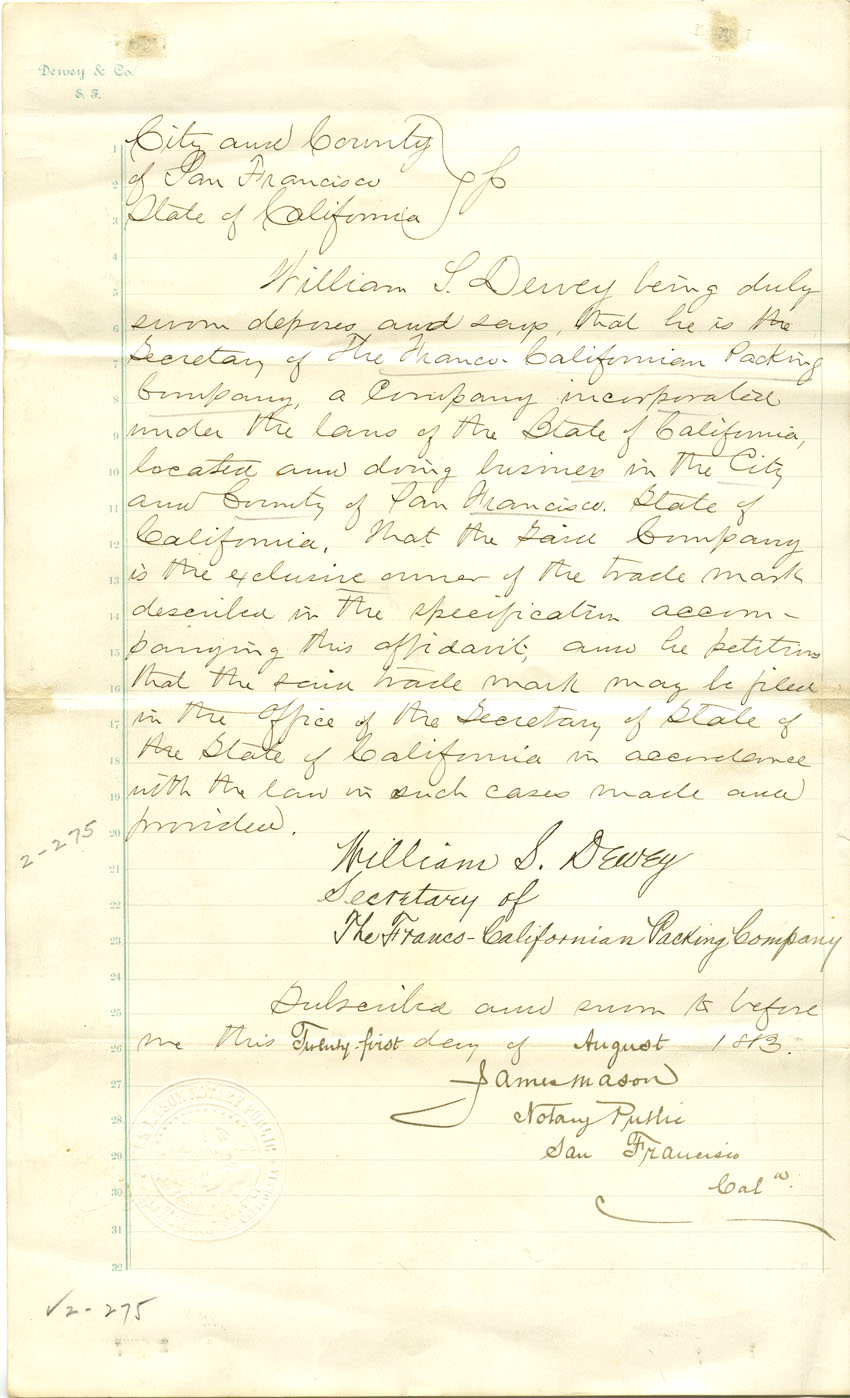 Dewey & Co.
S. F.
City and County
of San Francisco
State of California
1
2
3
4
5
6
7
8
9
10
11
12
13
14
15
16
17
18
19
20
21
22
23
24
25
26
27
28
29
30
31
32
William S. Dewey being duly
sworn deposes and says, that he is the
Secretary of The Franco-Californian Packing
Company, a Company incorporated
under the laws of the State of California,
located and doing business in the City
and County of San Francisco. State of
California. That the said Company
is the exclusive owner of the trade mark
described in the specification accom-
panying this affidavit; and he petitions
that the said trade mark may be filed
in the Office of the Secretary of State of
the State of California in accordance
with the law in such cases made and
provided.
2-275
William S. Dewey
Secretary of
The Franco-Californian Packing Company
Subscribed and sworn to before
me this Twenty-first day of August
James Mason
Notary Public
San Francisco
Cal a.
√2-275